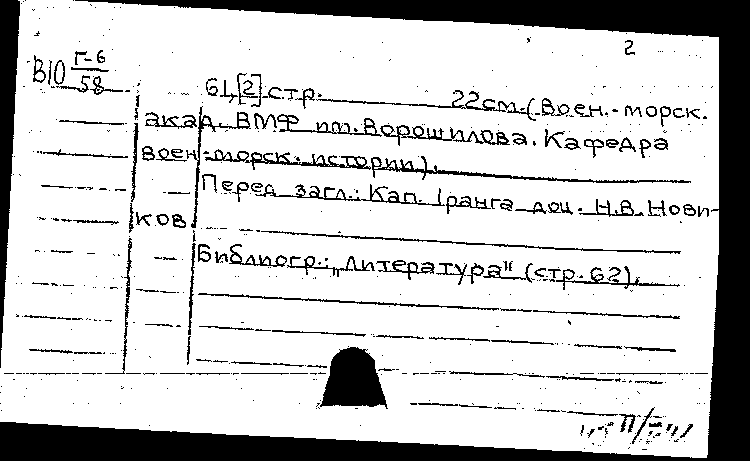 2
В10 Г-6/58
61,[2] стр. 22см.(Воен.-морск.
акад. ВМФ им.Ворошилова. Кафедра
воен-морск. истории).
Перед загл.: Кап. 1ранга доц. Н.В. Нови-
ков.
Библиогр.: „Литература" (стр.62).